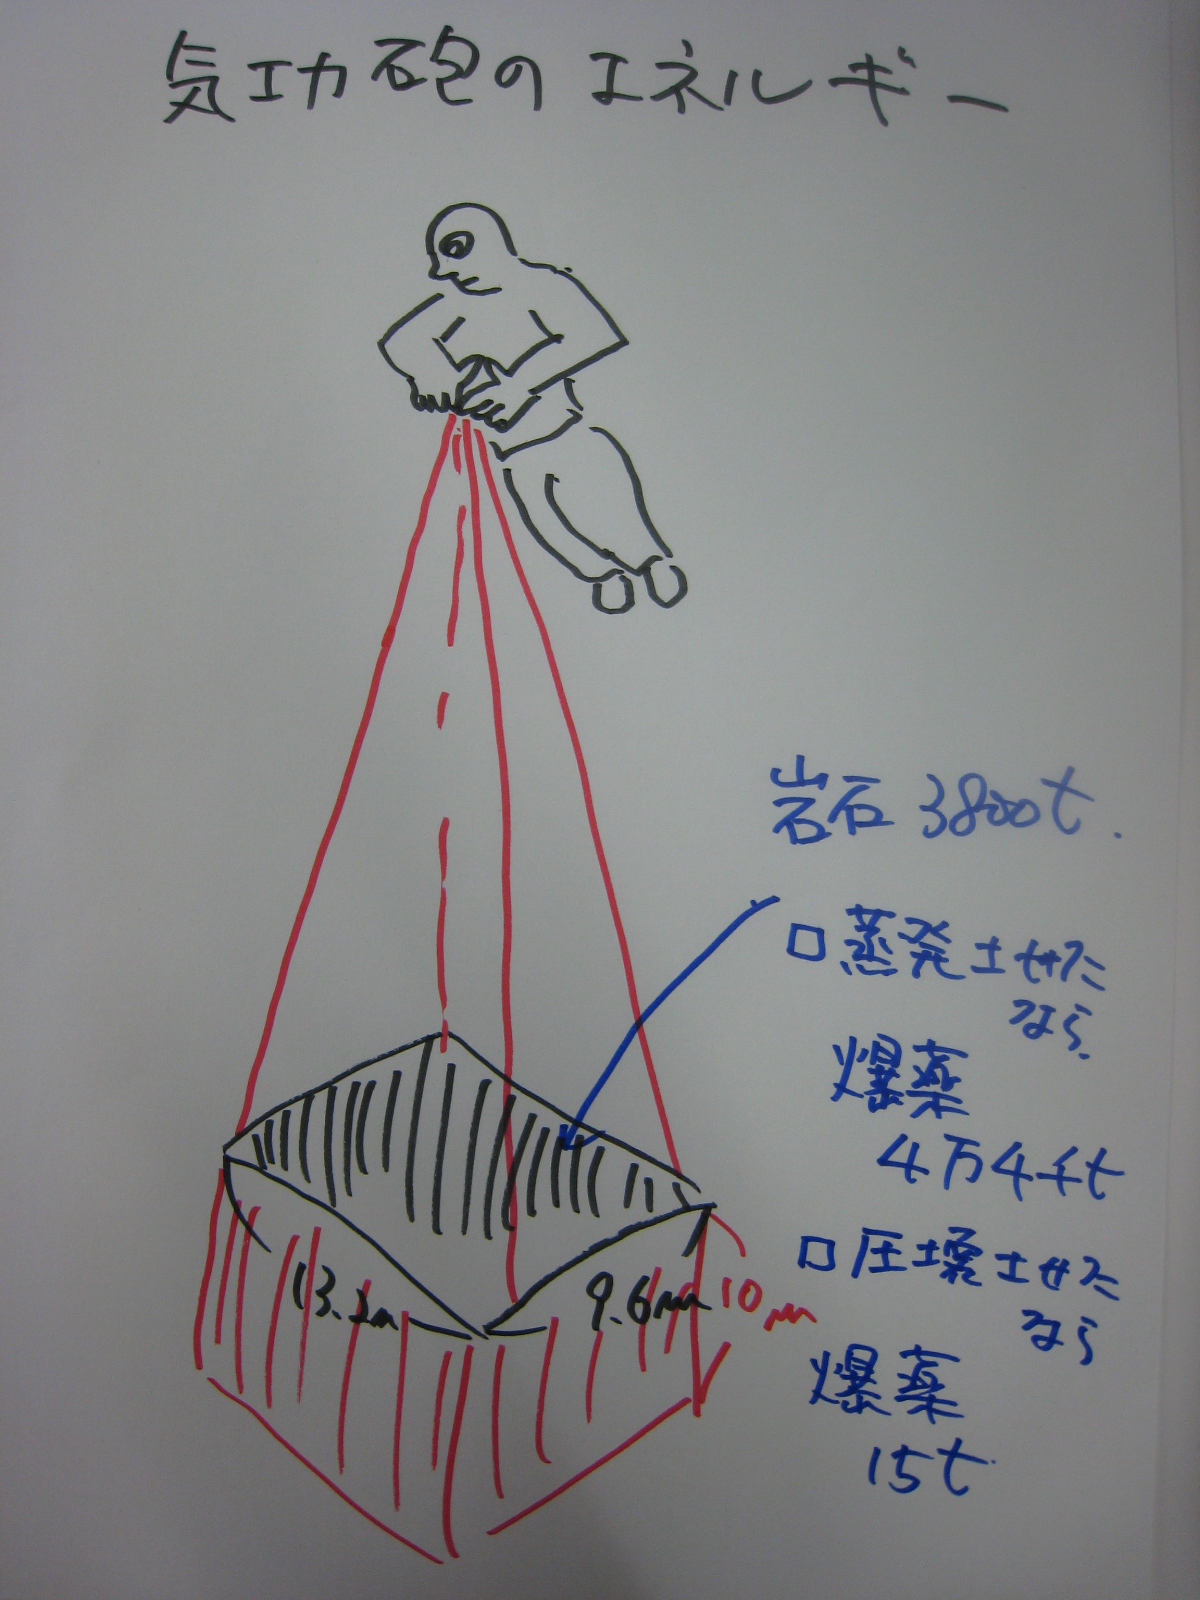 気功砲のエネルギー
岩石 3800t.
□蒸発させた
なら.
爆薬
4万4千t
□圧壊させた
なら
爆薬
15t
13.2m
9.6m
10m